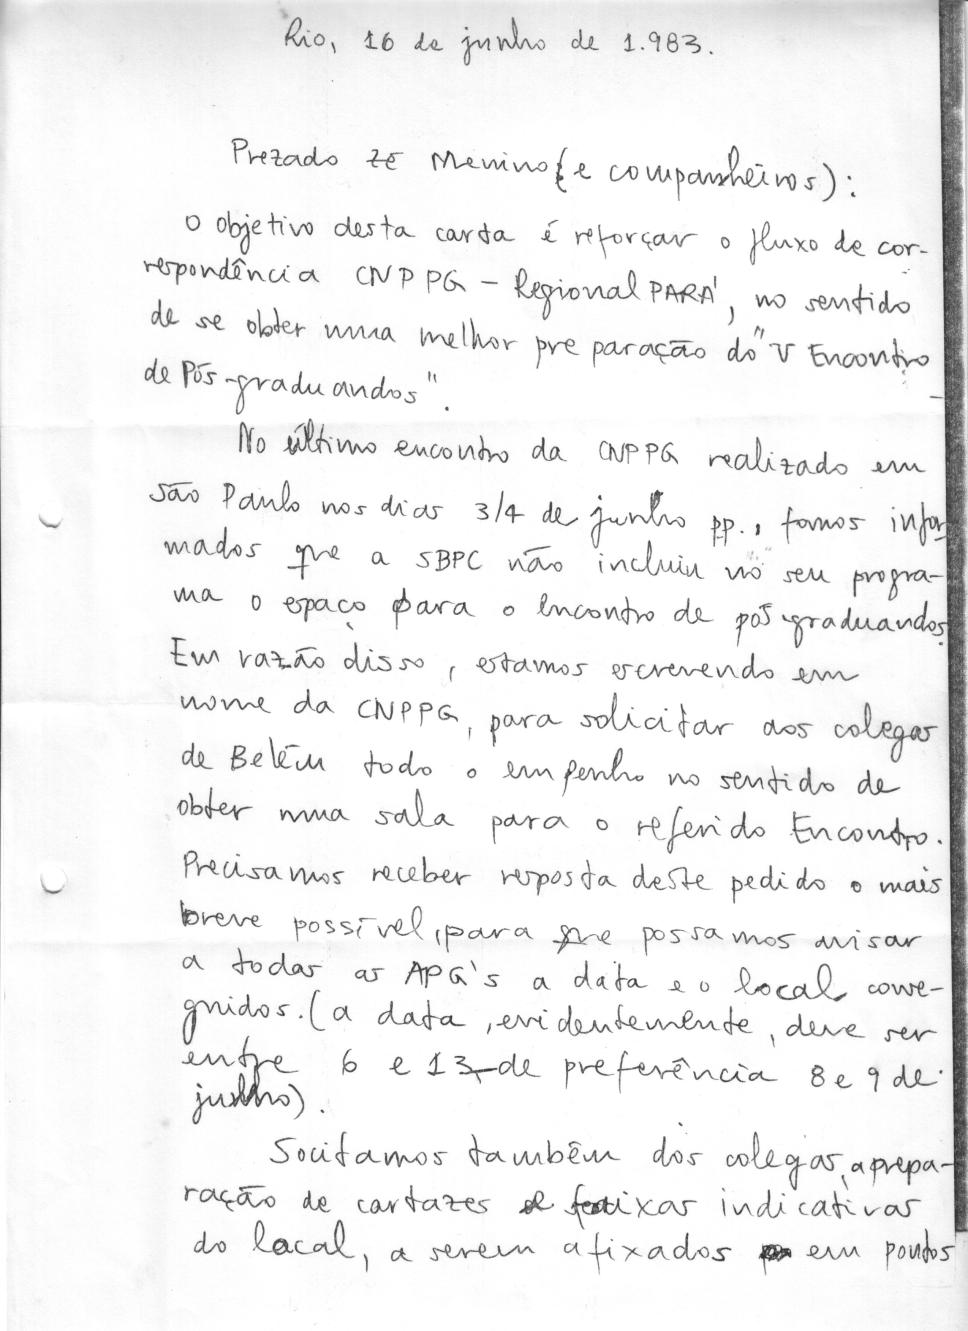 Rio, 16 de junho de 1.983.
Prezado Zé Menino (e companheiros):
O objetivo desta carta é reforçar o fluxo de cor-
respondência CNPPG - Regional PARÁ, no sentido
de se obter uma melhor preparação do "V Encontro
de Pós-graduandos".
No último encontro da CNPPG realizado em
São Paulo nos dias 3/4 de junho pp., fomos infor
mados que a SBPC não incluiu no seu progra-
ma o espaço para o encontro de pós-graduandos.
Em razão disso, estamos escrevendo em
nome da CNPPG, para solicitar aos colegas
de Belém todo o empenho no sentido de
obter uma sala para o referido Encontro.
Precisamos receber resposta deste pedido o mais
breve possível, para que possamos avisar
a todas as APG's a data e o local conse-
guidos. (a data, evidentemente, deve ser
entre 6 e 13, de preferência 8 e 9 de
julho).
Socitamos também dos colegas, a prepa-
ração de cartazes e faixas indicativas
do local, a serem afixados em pontos